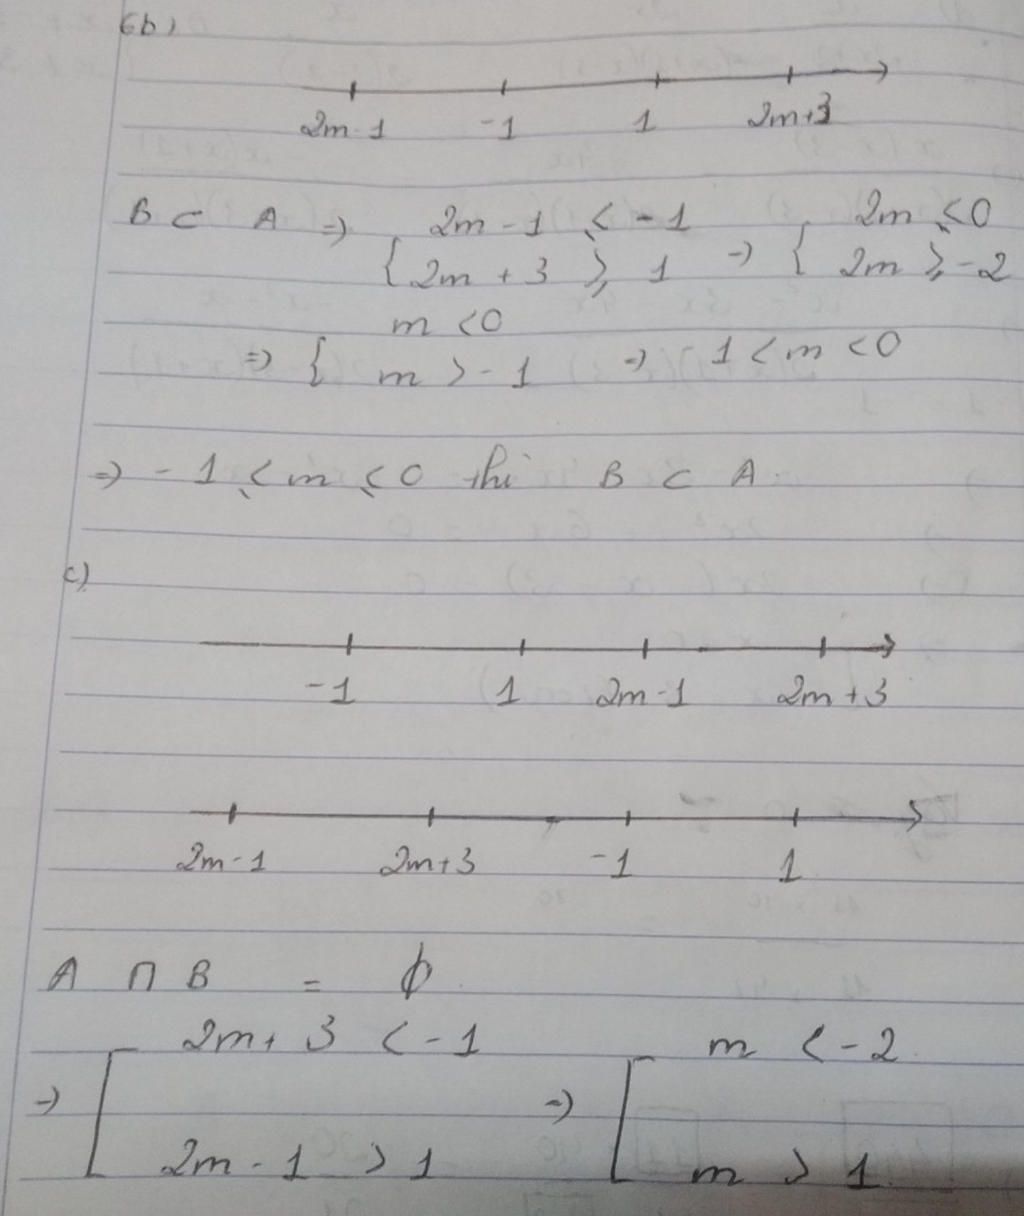 6b)
2m-1 -1 1 2m+3
B ⊂ A => { 2m - 1 ≤ -1 => { 2m ≤ 0
2m + 3 ≥ 1 2m ≥ -2
=> { m < 0
m > -1 => 1 < m < 0
=> -1 ≤ m ≤ 0 thì B ⊂ A.
c)
-1 1 2m-1 2m+3
2m-1 2m+3 -1 1
A ∩ B = ϕ
=> [ 2m + 3 < -1 => [ m < -2
2m - 1 > 1 m > 1